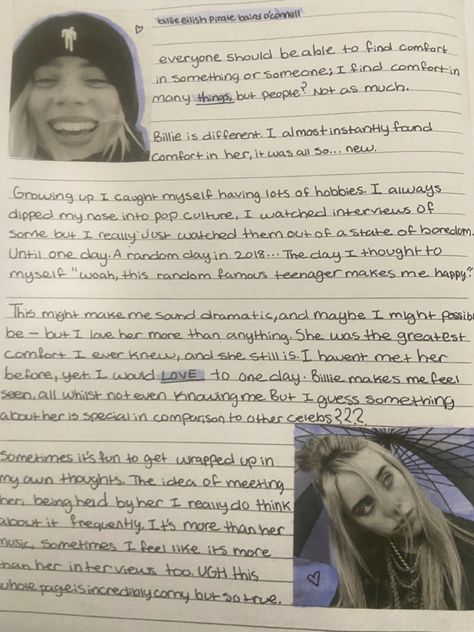 billie eilish pirate baird o'connell
everyone should be able to find comfort
in something or someone; I find comfort in
many things, but people? Not as much.
Billie is different. I almost instantly found
comfort in her, it was all so... new.
Growing up I caught myself having lots of hobbies. I always
dipped my nose into pop culture, I watched interviews of
some but I really just watched them out of a state of boredom.
Until one day. A random day in 2018... The day I thought to
myself "woah, this random famous teenager makes me happy?"
This might make me sound dramatic, and maybe I might possib
be – but I love her more than anything. She was the greatest
comfort I ever knew, and she still is. I havent met her
before, yet I would LOVE to one day. Billie makes me feel
seen, all whilst not even knowing me. But I guess something
about her is special in comparison to other celebs???
Sometimes it's fun to get wrapped up in
my own thoughts. The idea of meeting
her, being held by her I really do think
about it frequently. It's more than her
music, sometimes I feel like it's more
than her interviews too. UGH this
whole page is incredibly corny but so true.